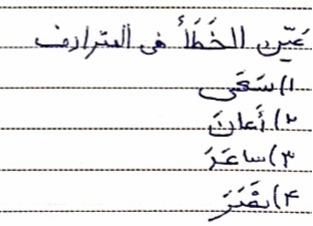 عَيِّن الخَطَأ في المترادف
۱) سَعَى
۲) أَعانَ
۳) ساعَدَ
۴) نَصَرَ